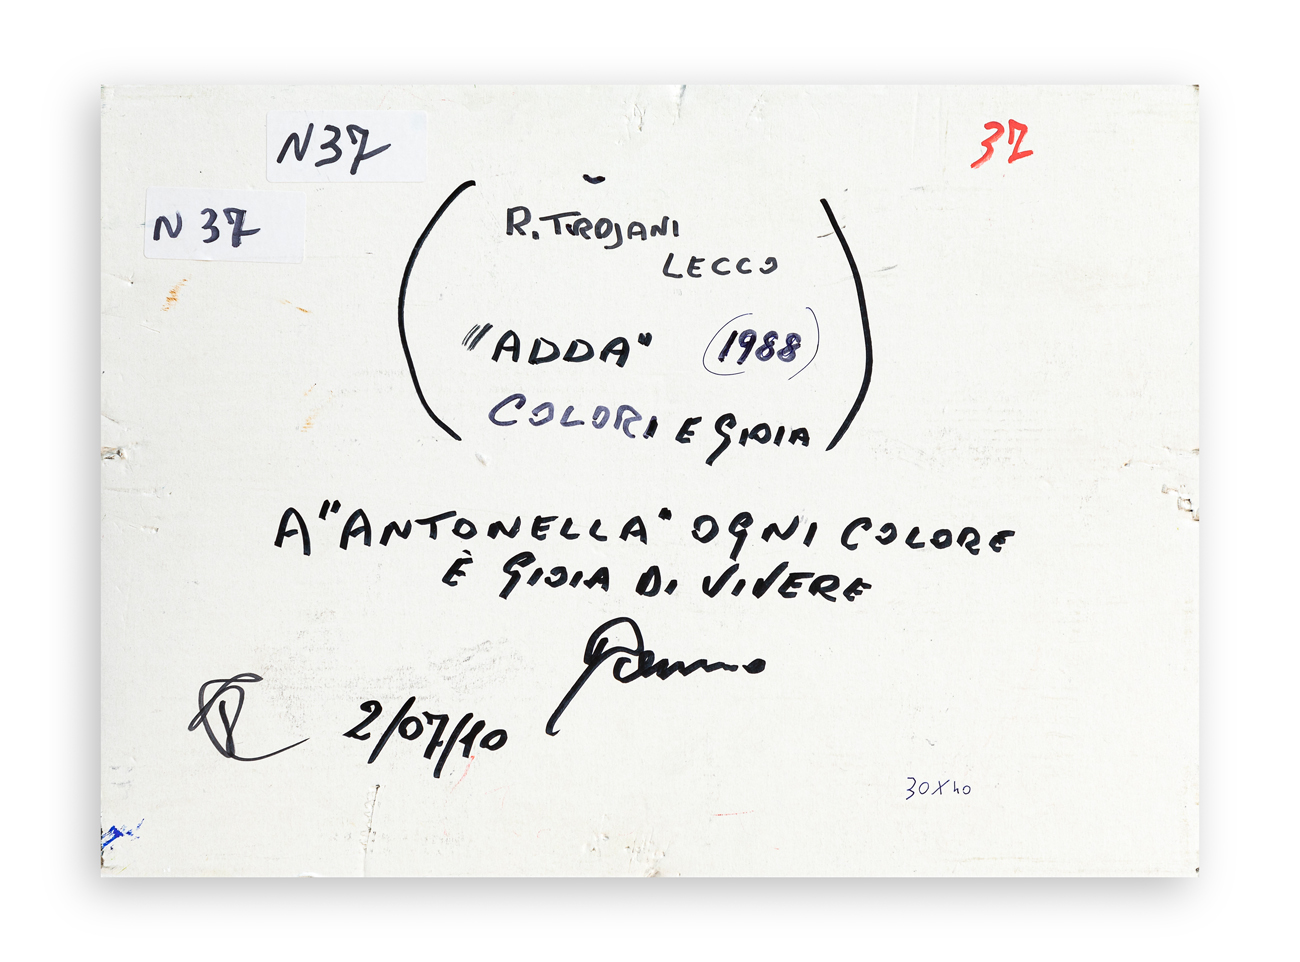 N 37
37
N 37
R. TROJANI
LECCO
"ADDA" (1988)
COLORI E GIOIA
A "ANTONELLA" OGNI COLORE
È GIOIA DI VIVERE
2/07/10
30X40